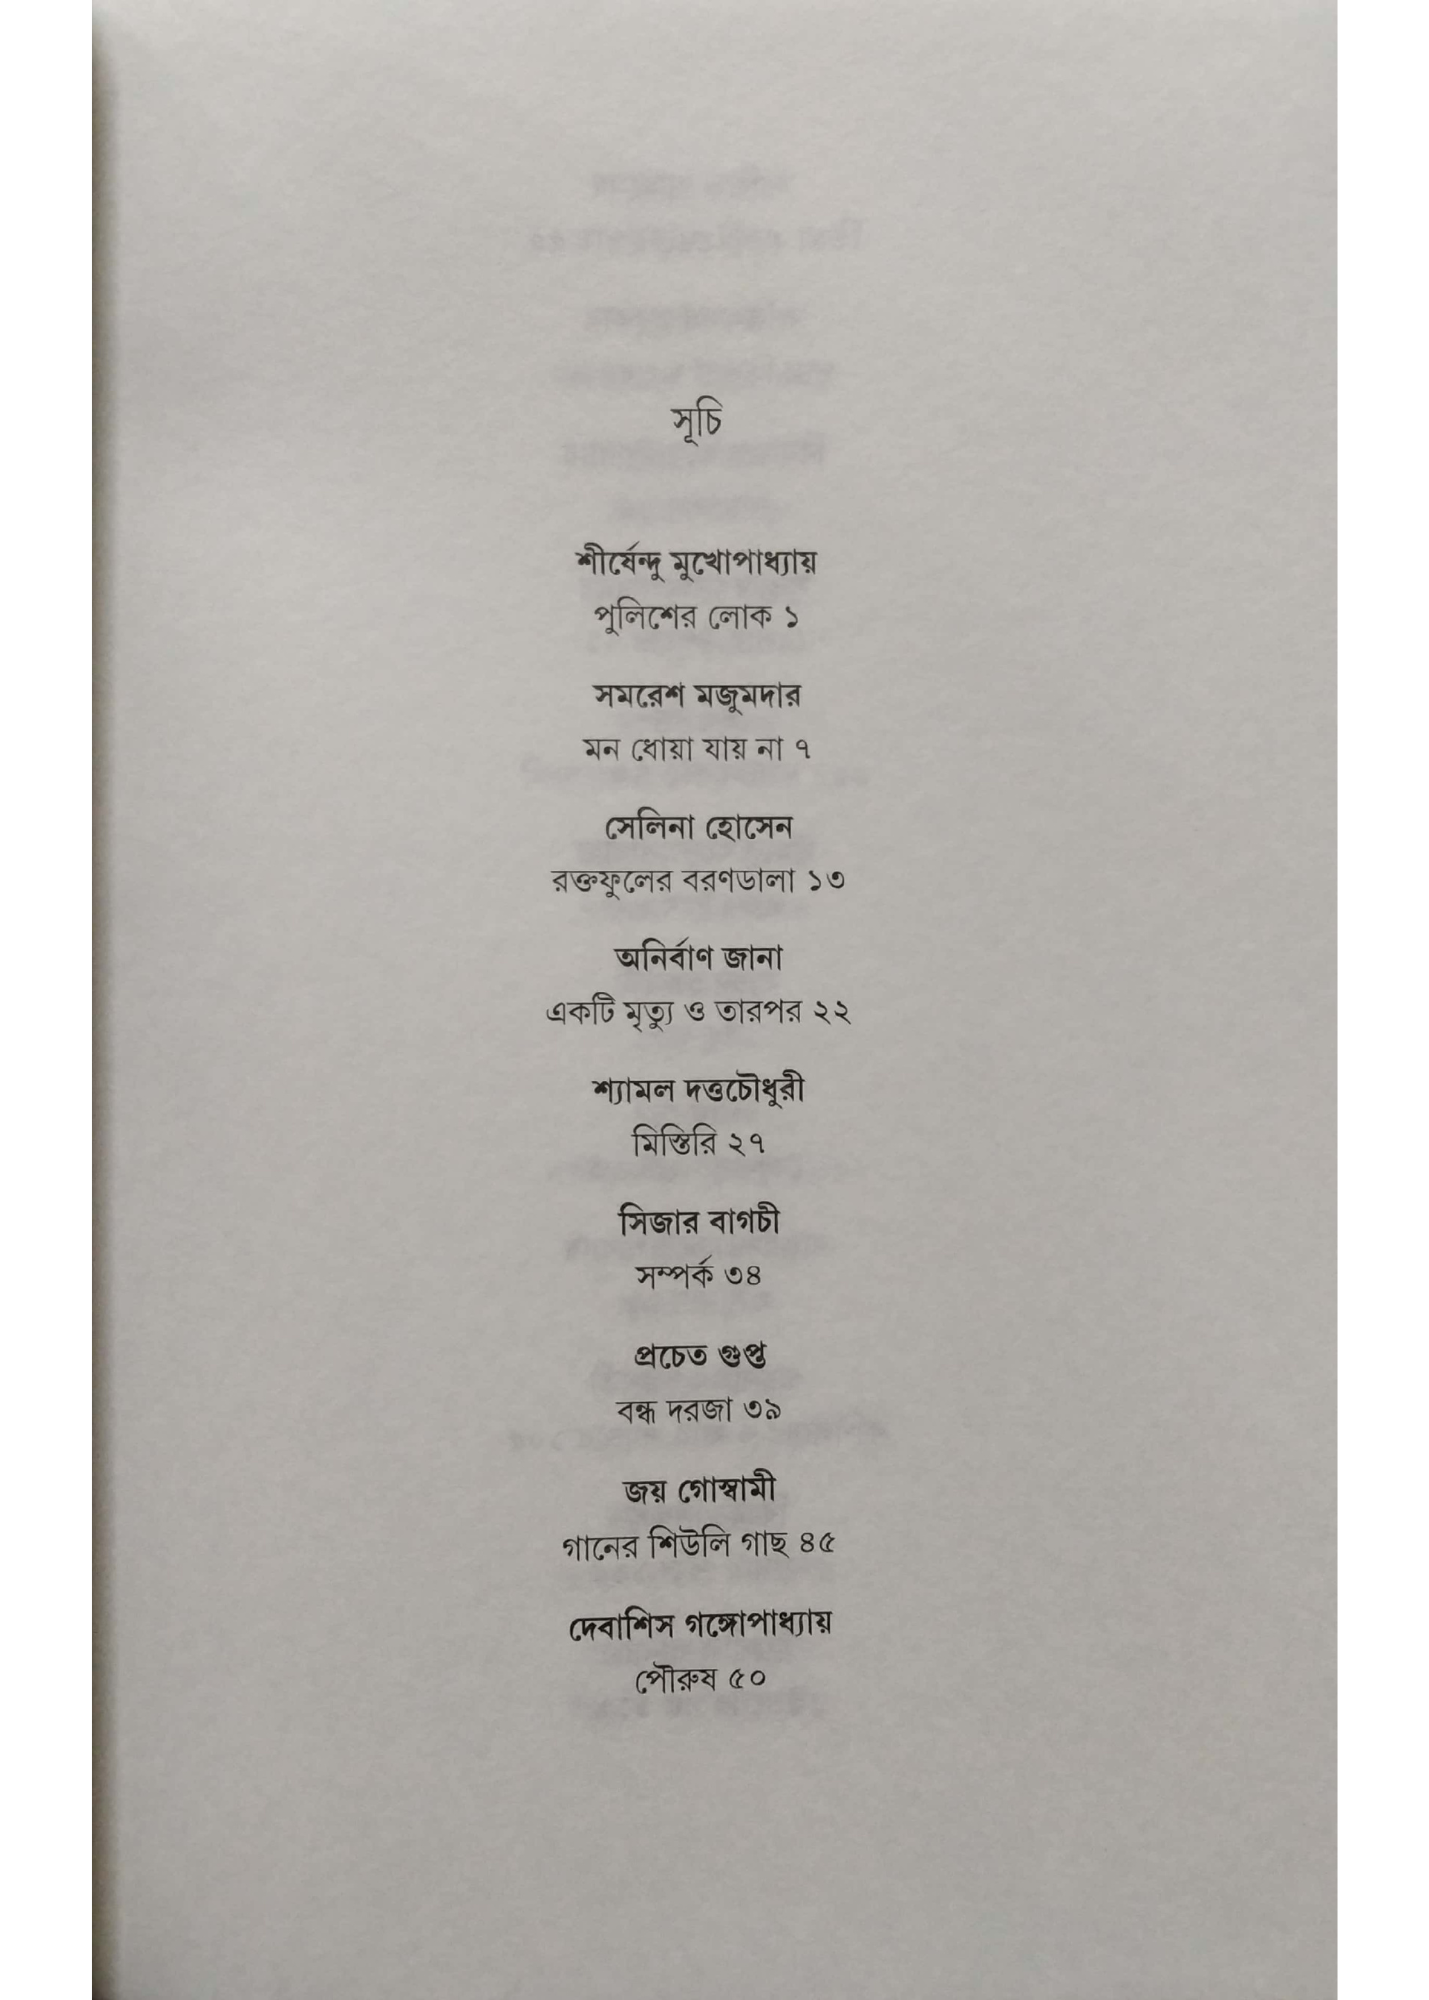 সূচি
শীর্ষেন্দু মুখোপাধ্যায়
পুলিশের লোক ১
সমরেশ মজুমদার
মন ধোয়া যায় না ৭
সেলিনা হোসেন
রক্তফুলের বরণডালা ১৩
অনির্বাণ জানা
একটি মৃত্যু ও তারপর ২২
শ্যামল দত্তচৌধুরী
মিস্তিরি ২৭
সিজার বাগচী
সম্পর্ক ৩৪
প্রচেত গুপ্ত
বন্ধ দরজা ৩৯
জয় গোস্বামী
গানের শিউলি গাছ ৪৫
দেবাশিস গঙ্গোপাধ্যায়
পৌরুষ ৫০